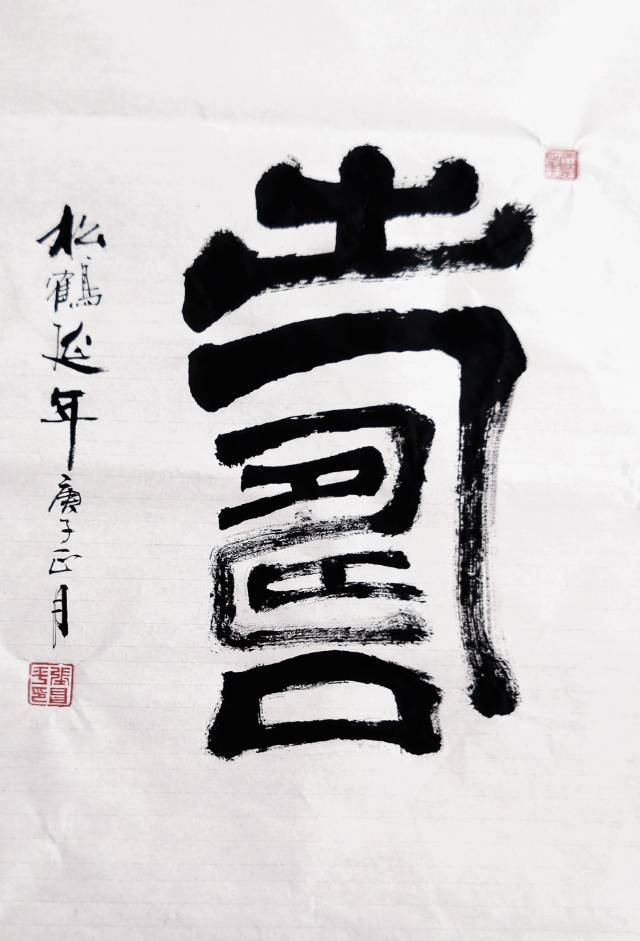 壽
松鶴延年 庚子正月